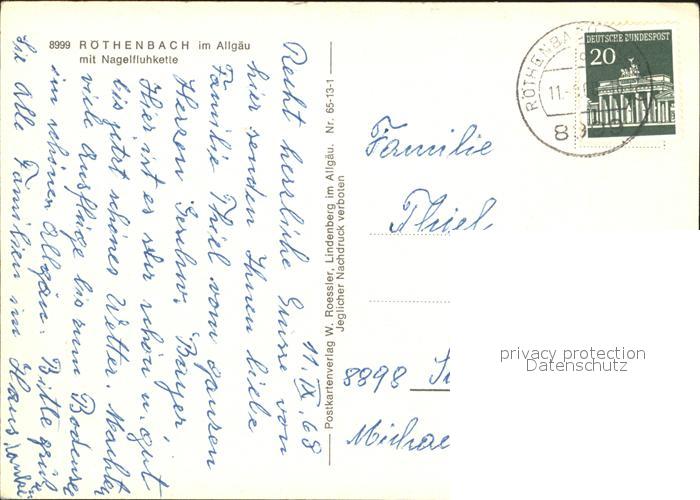 8999 RÖTHENBACH im Allgäu
mit Nagelfluhkette
11. IX. 68
Recht herzliche Grüsse von
hier senden Ihnen liebe
Familie Thiel vom ganzen
Herzen Geschw. Bayer
Hier ist es sehr schön u. gut
bis jetzt schönes Wetter. Machten
viele Ausflüge bis zum Bodensee
im schönen Allgäu. Bitte
Sie Alle Familien im Haus
Postkartenverlag W. Roessler, Lindenberg im Allgäu. Nr. 65-13-1
Jeglicher Nachdruck verboten
RÖTHENBA
11.-
8999
DEUTSCHE BUNDESPOST
20
Familie
Thiel
8898
Michae
privacy protection
Datenschutz